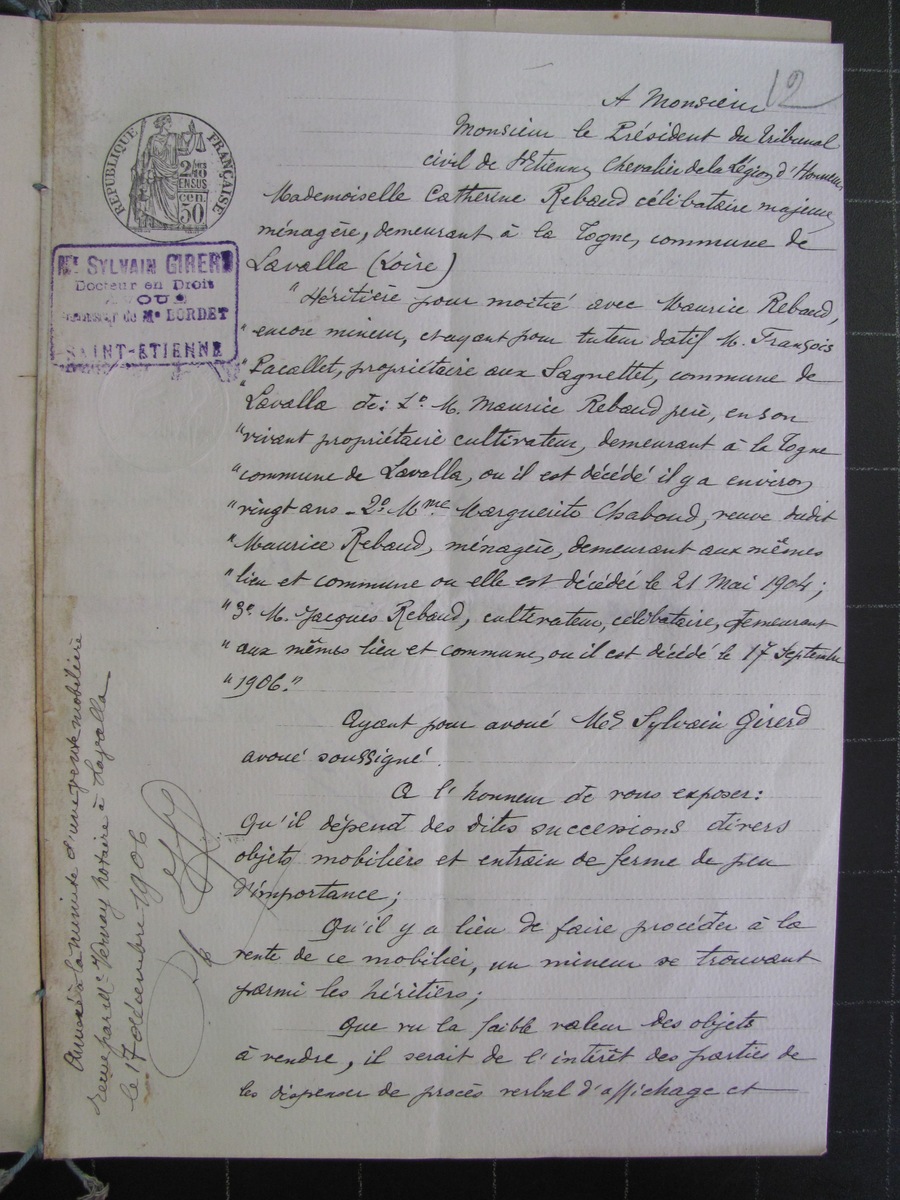 12
A Monsieur
Monsieur le Président du Tribunal
civil de St Etienne, Chevalier de la Légion d'Honneur,
REPUBLIQUE FRANÇAISE
2/10 EN SUS
50 cen.
Mademoiselle Catherine Rebaud célibataire majeure,
ménagère, demeurant à la Togne, commune de
Lavalla (Loire)
Me SYLVAIN GIRERD
Docteur en Droit
AVOUÉ
de Me BORDET
SAINT-ETIENNE
" Héritière pour moitié avec Maurice Rebaud,
" encore mineur, et ayant pour tuteur datif M. François
" Pacallet, propriétaire aux Sagnettet, commune de
" Lavalla de: 1o M. Maurice Rebaud père, en son
" vivant propriétaire cultivateur, demeurant à la Togne
" commune de Lavalla, ou il est décédé il y a environ
" vingt ans - 2o Mme Marguerite Chaboud, veuve dudit
" Maurice Rebaud, ménagère, demeurant aux mêmes
" lieu et commune ou elle est décédée le 21 Mai 1904;
" 3o M. Jacques Rebaud, cultivateur, célibataire, demeurant
" aux mêmes lieu et commune, ou il est décédé le 17 Septembre
" 1906."
Ayant pour avoué Me Sylvain Girerd
avoué soussigné.
A l'honneur de vous exposer:
Qu'il dépend des dites successions divers
objets mobiliers et entrain de ferme de peu
d'importance;
Qu'il y a lieu de faire procéder à la
vente de ce mobilier, un mineur se trouvant
parmi les héritiers;
Que vu la faible valeur des objets
à vendre, il serait de l'intérêt des parties de
les dispenser de procès verbal d'affichage et
Annexé à la minute d'une vente mobilière
reçue par Me Vernay notaire à Lavalla
le 17 décembre 1906